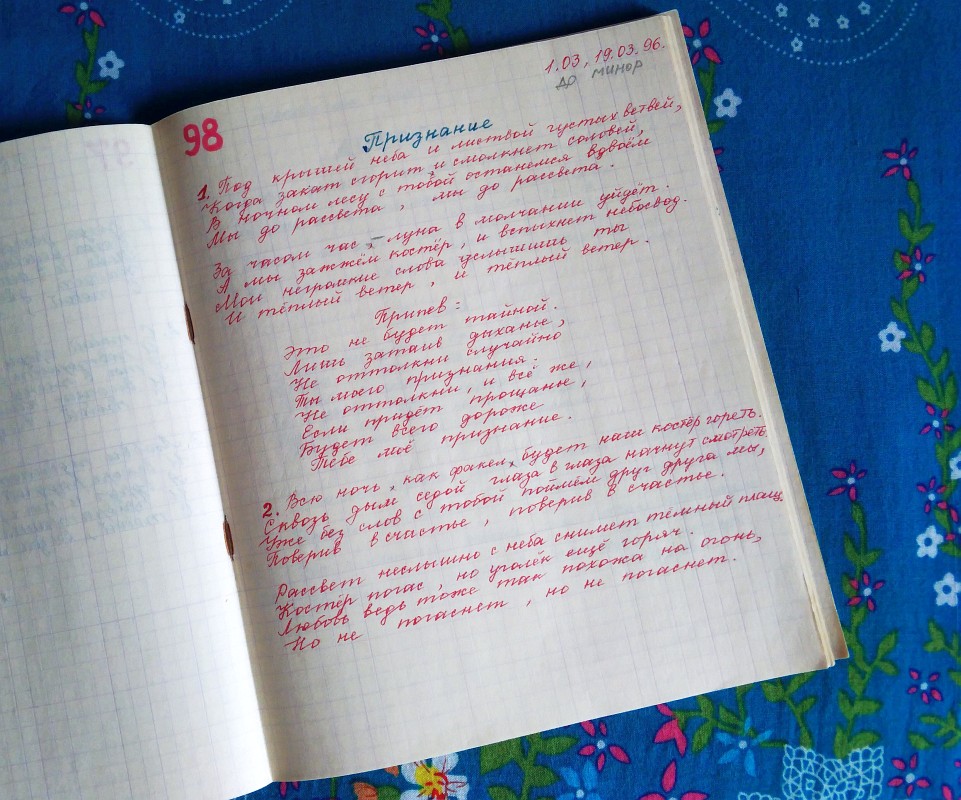 98
1.03, 19.03.96.
до минор
Признание
1. Под крышей неба и листвой густых ветвей,
Когда закат сгорит, и смолкнет соловей,
В ночном лесу с тобой останемся вдвоём
Мы до рассвета, мы до рассвета.
За часом час, – луна в молчании уйдёт.
А мы зажжём костёр, и вспыхнет небосвод.
Мои негромкие слова услышишь ты
И тёплый ветер, и тёплый ветер.
Припев:
Это не будет тайной.
Лишь затаив дыханье,
Не оттолкни случайно
Ты моего признания.
Не оттолкни, и всё же,
Если придёт прощанье,
Будет всего дороже
Тебе моё признание.
2. Всю ночь, как факел, будет наш костёр гореть.
Сквозь дым седой глаза в глаза начнут смотреть,
Уже без слов с тобой поймём друг друга мы,
Поверив в счастье, поверив в счастье.
Рассвет неслышно с неба снимет тёмный плащ,
Костёр погас, но уголёк ещё горяч.
Любовь ведь тоже так похожа на огонь,
Но не погаснет, но не погаснет.